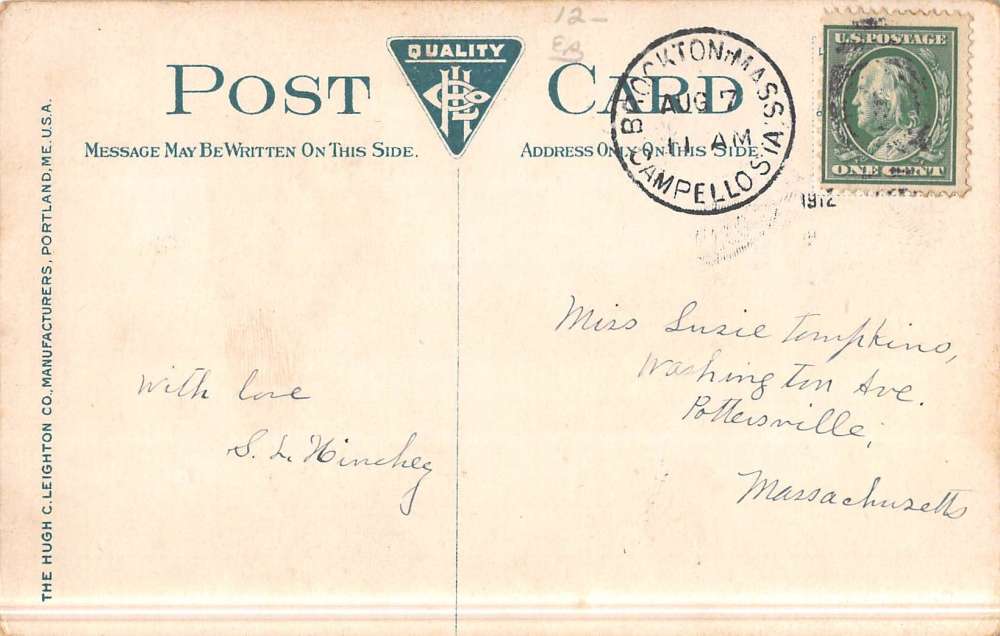 12-
EB
QUALITY
POST CARD
MESSAGE MAY BE WRITTEN ON THIS SIDE.
ADDRESS ONLY ON THIS SIDE
BROCKTON-MASS.
AUG 7
11 AM
CAMPELLO STA.
1912
U.S. POSTAGE
ONE CENT
THE HUGH C. LEIGHTON CO., MANUFACTURERS, PORTLAND, ME. U.S.A.
With love
S. L. Hinchey
Miss Susie Tompkins,
Washington Ave.
Pottersville,
Massachusetts